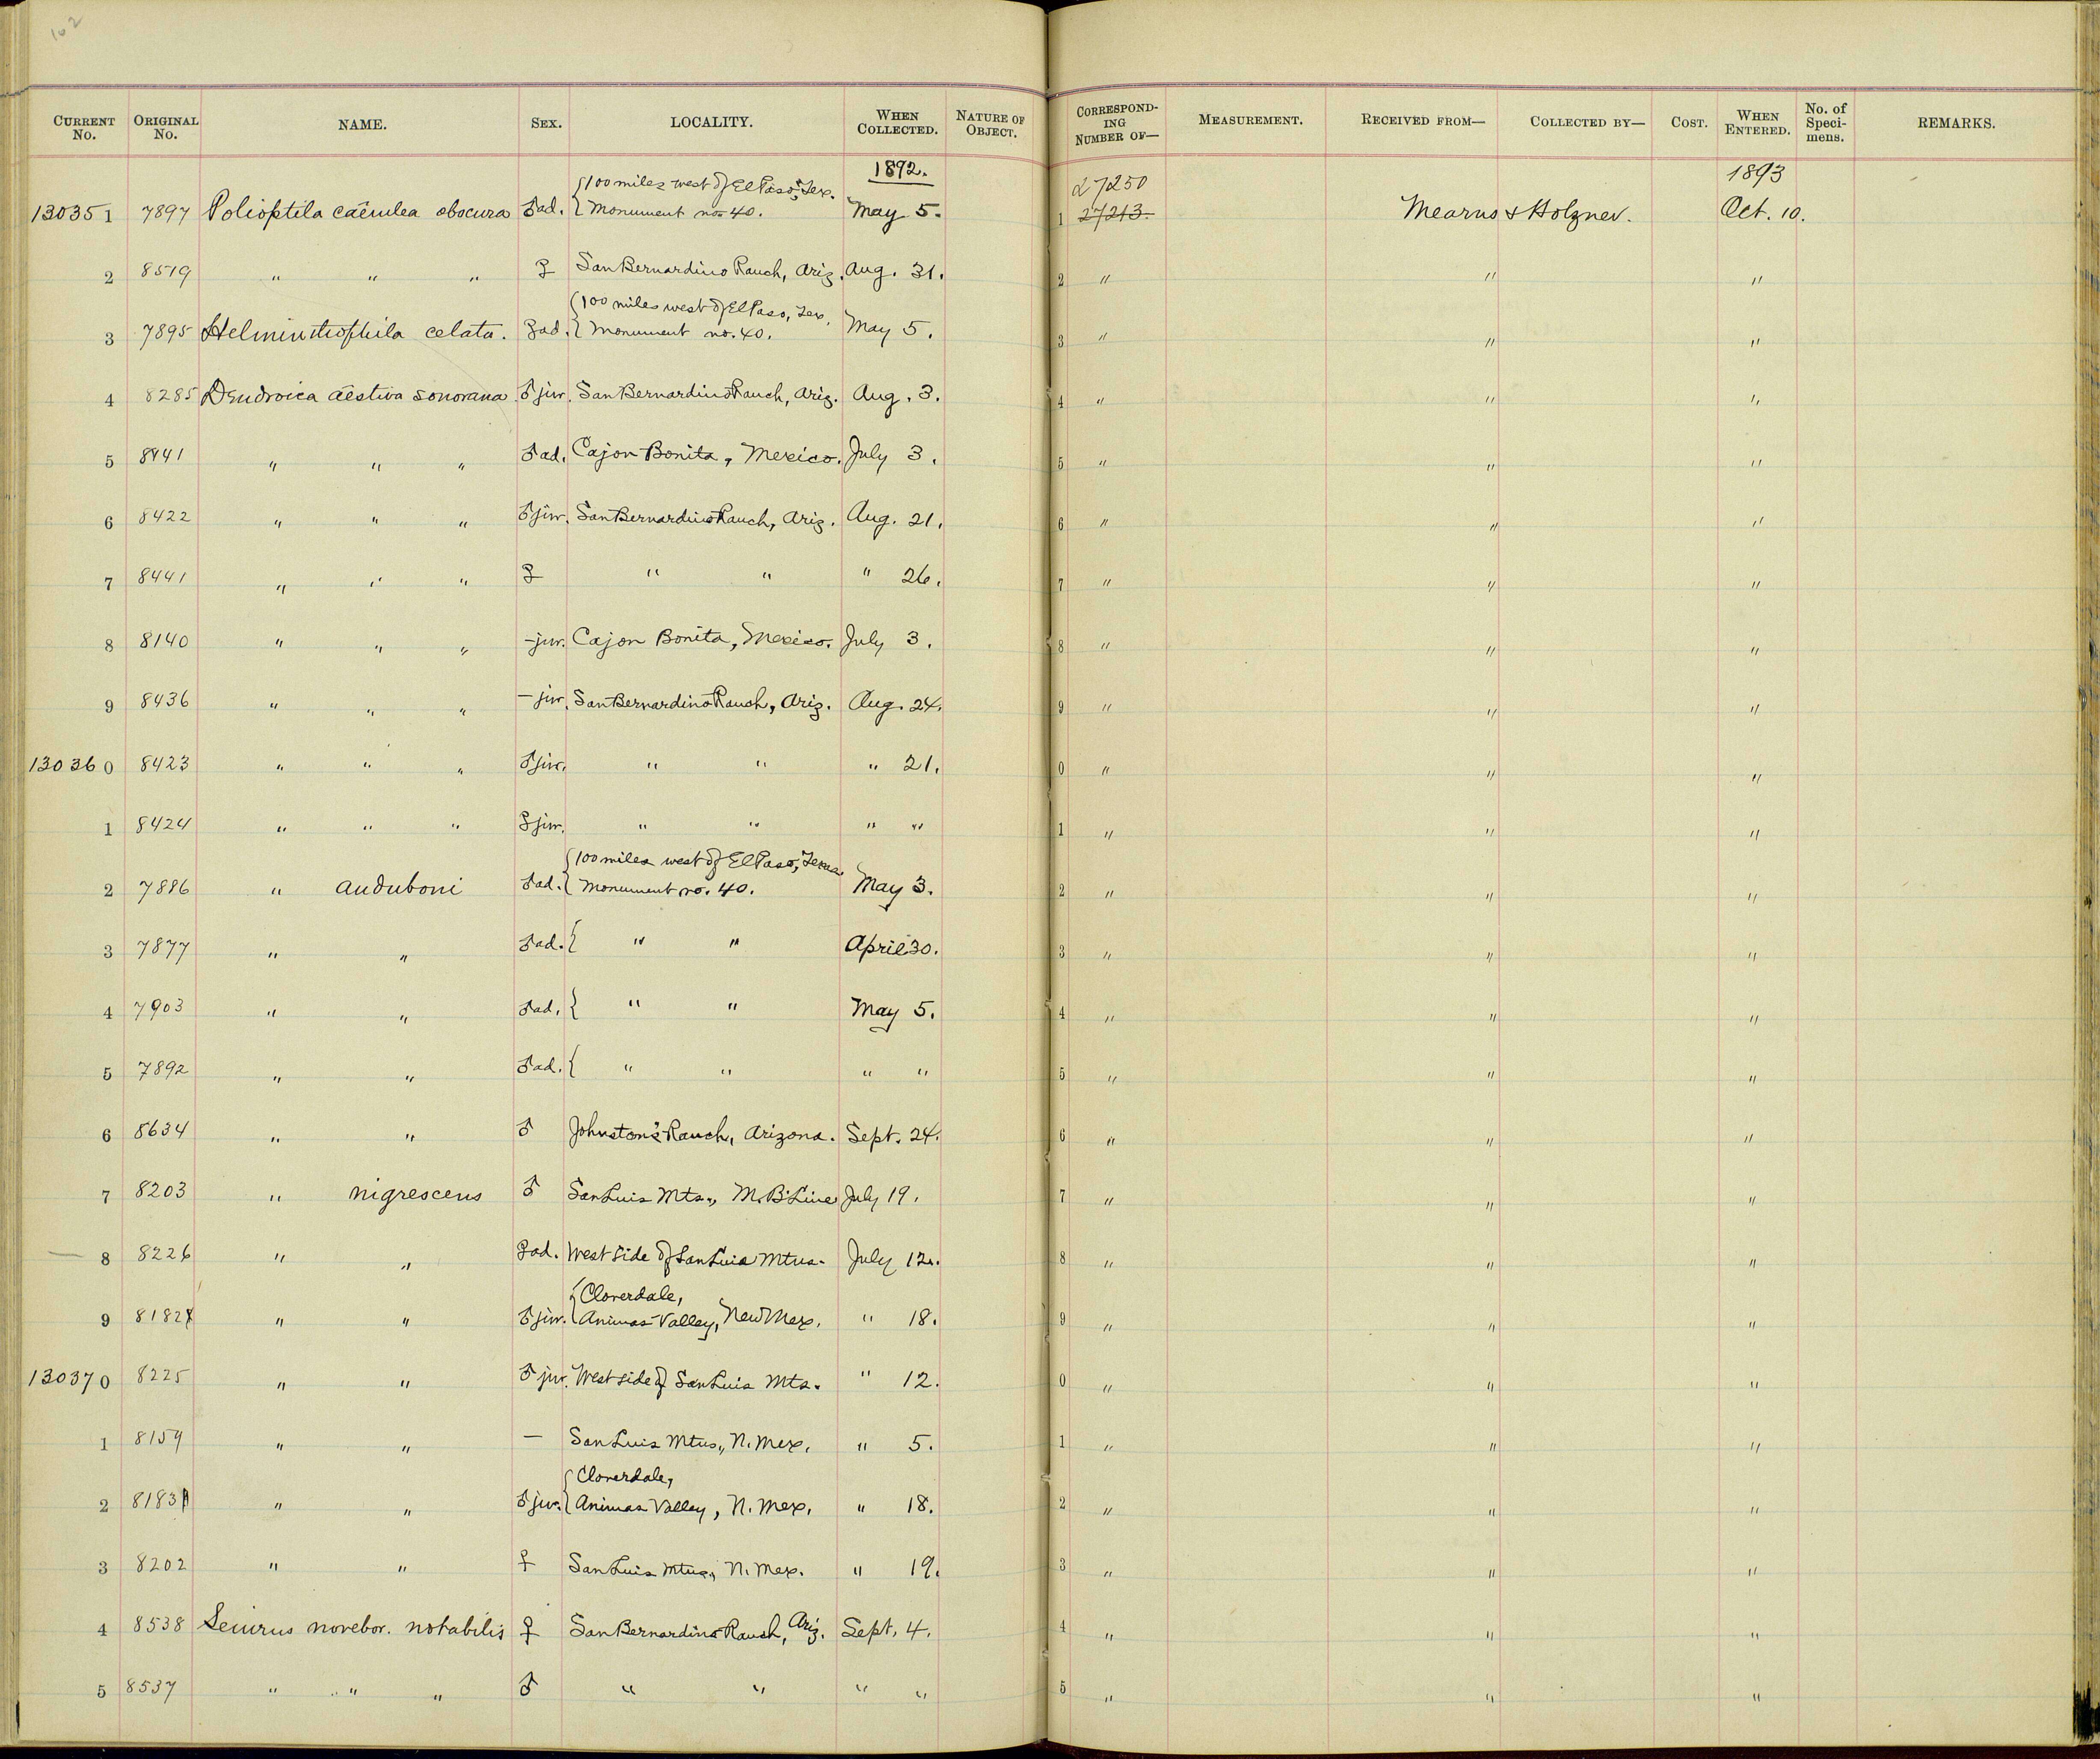 102
CURRENT No. ORIGINAL No. NAME. SEX. LOCALITY. WHEN COLLECTED. NATURE OF OBJECT. CORRESPONDING NUMBER OF— MEASUREMENT. RECEIVED FROM— COLLECTED BY— COST. WHEN ENTERED. No. of Specimens. REMARKS.
1892. 1893
{100 miles west of El Paso, Tex. 27250
130351 7897 Polioptila cæerulea obscura ♂ad. { Monument no. 40. May 5. 1 27213. Mearns & Holzner. Oct. 10.
2 8519 " " " ♀ San Bernardino Ranch, Ariz. Aug. 31. 2 " " "
{100 miles west of El Paso, Tex.
3 7895 Helminthophila celata. ♀ad. { Monument no. 40. May 5. 3 " " "
4 8285 Dendroica æstiva sonorana ♂juv. San Bernardino Ranch, Ariz. Aug. 3. 4 " " "
5 8141 " " " ♂ad. Cajon Bonita, Mexico. July 3. 5 " " "
6 8422 " " " ♂juv. San Bernardino Ranch, Ariz. Aug. 21. 6 " " "
7 8441 " " " ♀ " " " 26. 7 " " "
8 8140 " " " –juv. Cajon Bonita, Mexico. July 3. 8 " " "
9 8436 " " " –juv. San Bernardino Ranch, Ariz. Aug. 24. 9 " " "
130360 8423 " " " ♂juv. " " " 21. 0 " " "
1 8424 " " " ♀juv. " " " " 1 " " "
{100 miles west of El Paso, Texas.
2 7886 " auduboni ♂ad. { Monument no. 40. May 3. 2 " " "
3 7877 " " ♂ad. { " " April 30. 3 " " "
4 7903 " " ♂ad. { " " May 5. 4 " " "
5 7892 " " ♂ad. { " " " " 5 " " "
6 8634 " " ♂ Johnston's Ranch, Arizona. Sept. 24. 6 " " "
7 8203 " nigrescens ♂ San Luis Mts., M. B. Line July 19. 7 " " "
— 8 8226 " " ♀ad. West side of San Luis Mtns. July 12. 8 " " "
{Cloverdale,
9 8182 " " ♂juv. {Animas Valley, New Mex. " 18. 9 " " "
130370 8225 " " ♂juv. West side of San Luis Mts. " 12. 0 " " "
1 8159 " " — San Luis Mtns., N. Mex. " 5. 1 " " "
{Cloverdale,
2 8183 " " ♂juv. {Animas Valley, N. Mex. " 18. 2 " " "
3 8202 " " ♀ San Luis Mtns., N. Mex. " 19. 3 " " "
4 8538 Seiurus novebor. notabilis ♀ San Bernardino Ranch, Ariz. Sept. 4. 4 " " "
5 8537 " " " ♂ " " " " 5 " " "